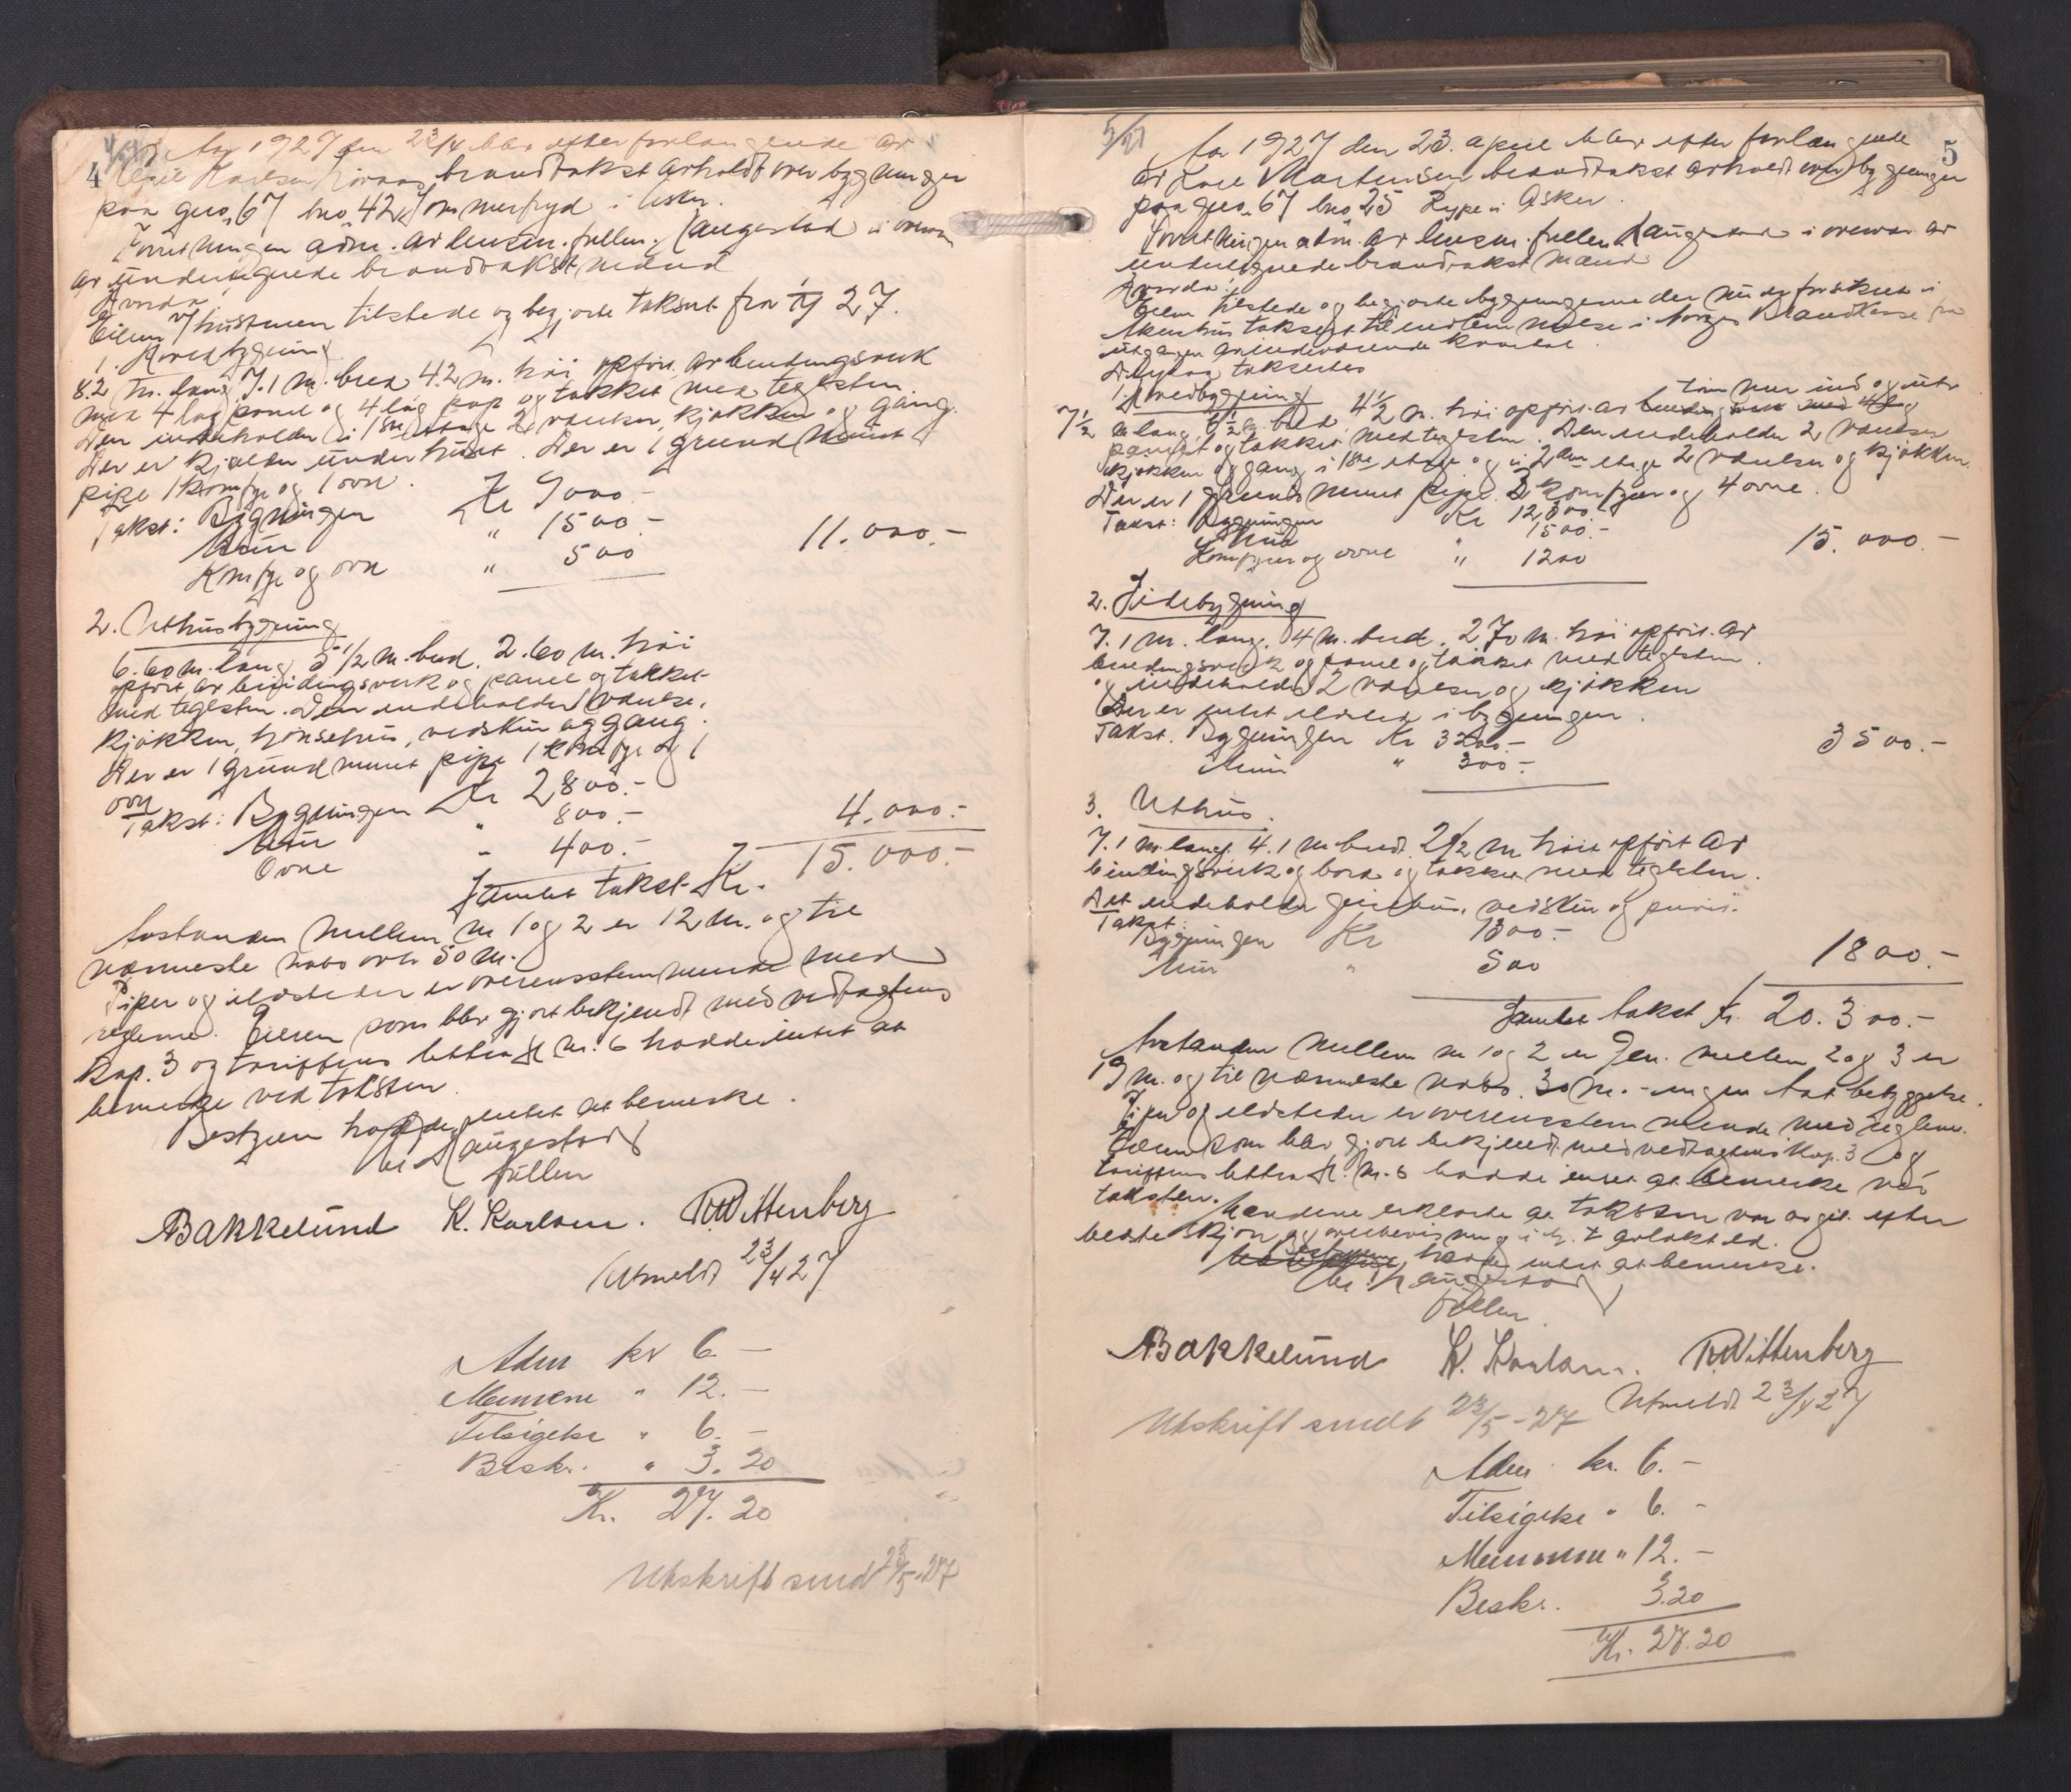 4
Aar 1927 den 23/4 blev efter forlangende av
Karlsen brandtakst avholdt over bygninger
paa gno. 67 bno. 42 Sommerfryd i Asker.
Forretningen adm. av lensm. fullm. Laugestad i overvær
av undertegnede brandtakstmænd
Hvorda!
Eieren tilstede og begjærte takseret fra 27.
1. Hovedbygning
8.2 m. lang 7.1 m. bred 4.2 m. høi opført av bindingsverk
med 4 lag panel og 4 lag pap og tækket med teglsten.
Den indeholder i 1ste etage 2 værelser, kjøkken og gang.
Der er kjælder under huset. Der er 1 grundmuret
pipe 1 komfyr og 1 ovn.
Takst: Bygningen Kr 9000.-
Mur " 1500.-
Komfyr og ovn " 500 11.000.-
2. Uthusbygning
6.60 m. lang 5 1/2 m. bred. 2.60 m. høi
opført av bindingsverk og panel og tækket
med teglsten. Den indeholder 1 værelse,
kjøkken, hønsehus, vedskur og gang.
Der er 1 grundmuret pipe 1 komfyr og 1
ovn
Takst: Bygningen Kr 2800.-
Mur " 800.-
Ovne " 400.- 4.000.-
Samlet takst Kr. 15.000.-
Avstanden mellem nr 1 og 2 er 12 m. og til
nærmeste nabo over 50 m.
Piper og ildsteder er overensstemmende med
reglene. Eieren som blev gjort bekjendt med vedtægtens
kap. 3 og tariffens littra A nr. 6 hadde intet at
bemerke ved taksten.
Bestyren hadde intet at bemerke.
Laugestad
fullm
A Bakkelund K. Karlsen. R Wittenberg
Utmeldt 23/4 27
Adm kr 6.-
Mennene " 12.-
Tilsigelse " 6.-
Beskr. " 3.20
Kr. 27.20
Utskrift sendt 23/5-27
5/27
5
Aar 1927 den 23. april blev efter forlangende
av Karl Martensen brandtakst avholdt over bygninger
paa gno. 67 bno 25 Rype i Asker.
Forretningen adm. av lensm. fullm Laugestad i overvær av
undertegnede brandtakstmænd
Hvorda!
Eieren tilstede og begjærte bygningerne der nu er forsikret i
Akershus taksert til indlemmelse i Norges Brandkasse fra
utgangen av indeværende kvartal.
Derpaa taksertes
1. Hovedbygning
7 1/2 m lang, 6 1/2 m. bred 4 1/2 m. høi opført av tømmer ind og utv
panelt og tækket med teglsten. Den indeholder 2 værelser
kjøkken og gang i 1ste etage og i 2den etage 2 værelser og kjøkken.
Der er 1 grundmuret pipe. 2 komfyrer og 4 ovne.
Takst: Bygningen Kr 12,300.-
Mur " 1500.-
Komfyrer og ovne " 1200 15.000.-
2. Sidebygning
7.1 m. lang. 4 m. bred. 2.70 m. høi opført av
bindingsverk og panel og tækket med teglsten.
og indeholder 2 værelser og kjøkken
Der er intet ildsted i bygningen.
Takst. Bygningen Kr 3200.-
Mur " 300.- 3500.-
3. Uthus.
7.1 m. lang. 4.1 m bred. 2 1/2 m høi opført av
bindingsverk og bord og tækket med teglsten.
Det indeholder grisehus, vedskur og privet.
Takst.
Bygningen Kr 1300.-
Mur " 500 1800.-
Samlet takst kr. 20.300.-
Avstanden mellem nr 1 og 2 er 7 m. mellem 2 og 3 er
19 m. og til nærmeste nabo 30 m. - ingen tæt bebyggelse.
Piper og ildsteder er overensstemmende med reglene.
Eieren som blev gjort bekjendt med vedtægtens kap. 3 og
tariffens littra A. nr. 6 hadde intet at bemerke ved
taksten. Mændene erklærte at taksten var avgit efter
bedste skjøn og overbevisning i h. t avlakt ed.
hadde intet at bemerke.
Laugestad
fullm.
A Bakkelund K. Karlsen. R Wittenberg
Utskrift sendt 23/5-27 Utmeldt 23/4 27
Adm. kr. 6.-
Tilsigelse " 6.-
Mennene " 12.-
Beskr. 3.20
Kr. 27.20